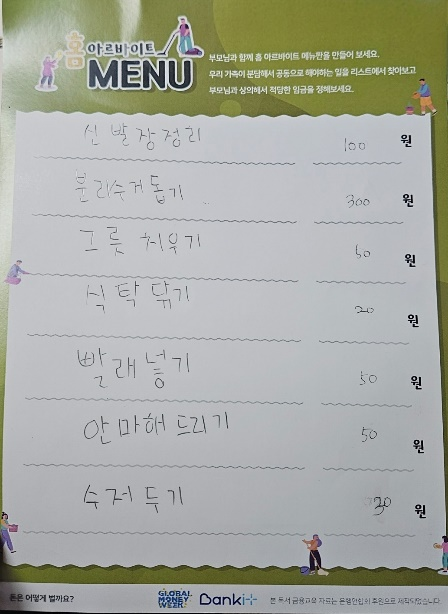 홈 아르바이트
MENU
부모님과 함께 홈 아르바이트 메뉴판을 만들어 보세요.
우리 가족이 분담해서 공동으로 해야하는 일을 리스트에서 찾아보고
부모님과 상의해서 적당한 임금을 정해보세요.
신발장정리 100 원
분리수거돕기 300 원
그릇 치우기 50 원
식탁 닦기 20 원
빨래넣기 50 원
안마해드리기 50 원
수저 두기 30 원
돈은 어떻게 벌까요?
GLOBAL MONEY WEEK
Banki
본 독서 금융교육 자료는 은행연합회 후원으로 제작되었습니다